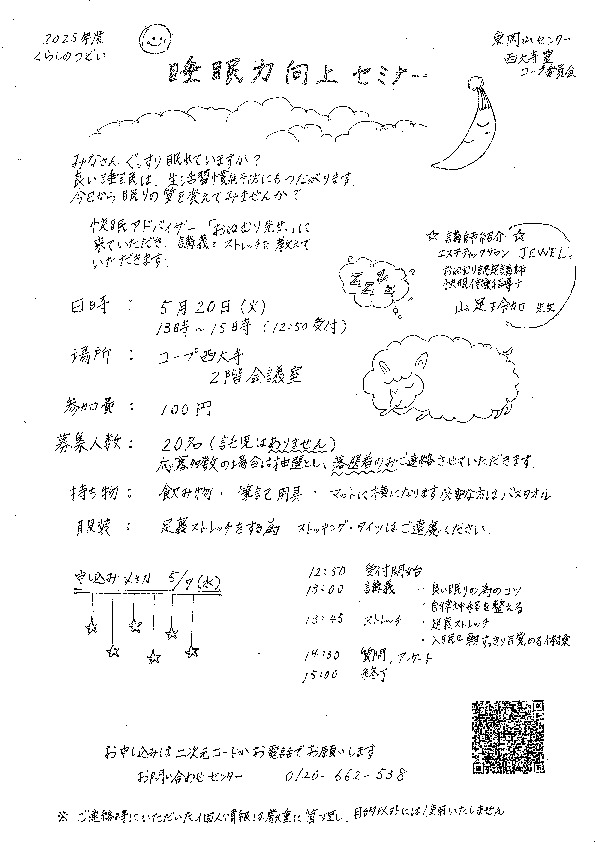 2025年度
くらしのつどい
東岡山センター
西大寺業
コープ委員会
睡眠力向上セミナー
みなさん ぐっすり眠れていますか?
良い睡眠は、生活習慣病予防にもつながります。
今日から眠りの質を変えてみませんか?
快眠アドバイザー「おねむり先生」に
来ていただき、講義とストレッチを教えて
いただきます。
☆ 講師紹介 ☆
エステティックサロン JEWEL.
おねむり講師
快眠
先生
Z Z Z Z
日時 : 5月20日(火)
13時~15時 (12:50受付)
場所 : コープ西大寺
2階会議室
参加費 : 100円
募集人数 : 20名 (託児はありません)
応募多数の場合は抽選とし、落選者のみご連絡させていただきます。
持ち物 : 飲み物・筆記用具・マットに横になります 必要な方はバスタオル
服装 : 足裏ストレッチをする為 ストッキング・タイツはご遠慮ください。
申し込み〆切 5/7(水)
12:50 受付開始
13:00 講義 ・良い眠りの為のコツ
・自律神経を整える
13:45 ストレッチ ・足裏ストレッチ
・入眠と朝すっきり目覚める体操
14:30 質問、アンケート
15:00 終了
お申し込みは二次元コードかお電話でお願いします
お問い合わせセンター 0120-662-538
※ ご連絡時にいただいた個人情報は厳重に管理し、目的以外には使用いたしません